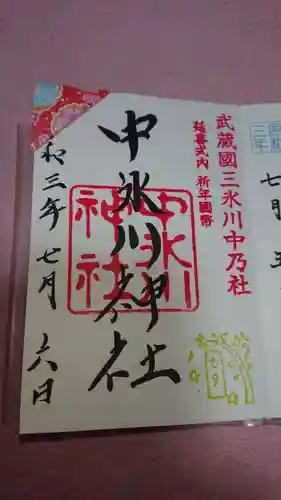 武蔵國三氷川中乃社
延喜式内 祈年國幣
中氷川神社
中氷川
神社
七夕
和三年七月六日
七月五